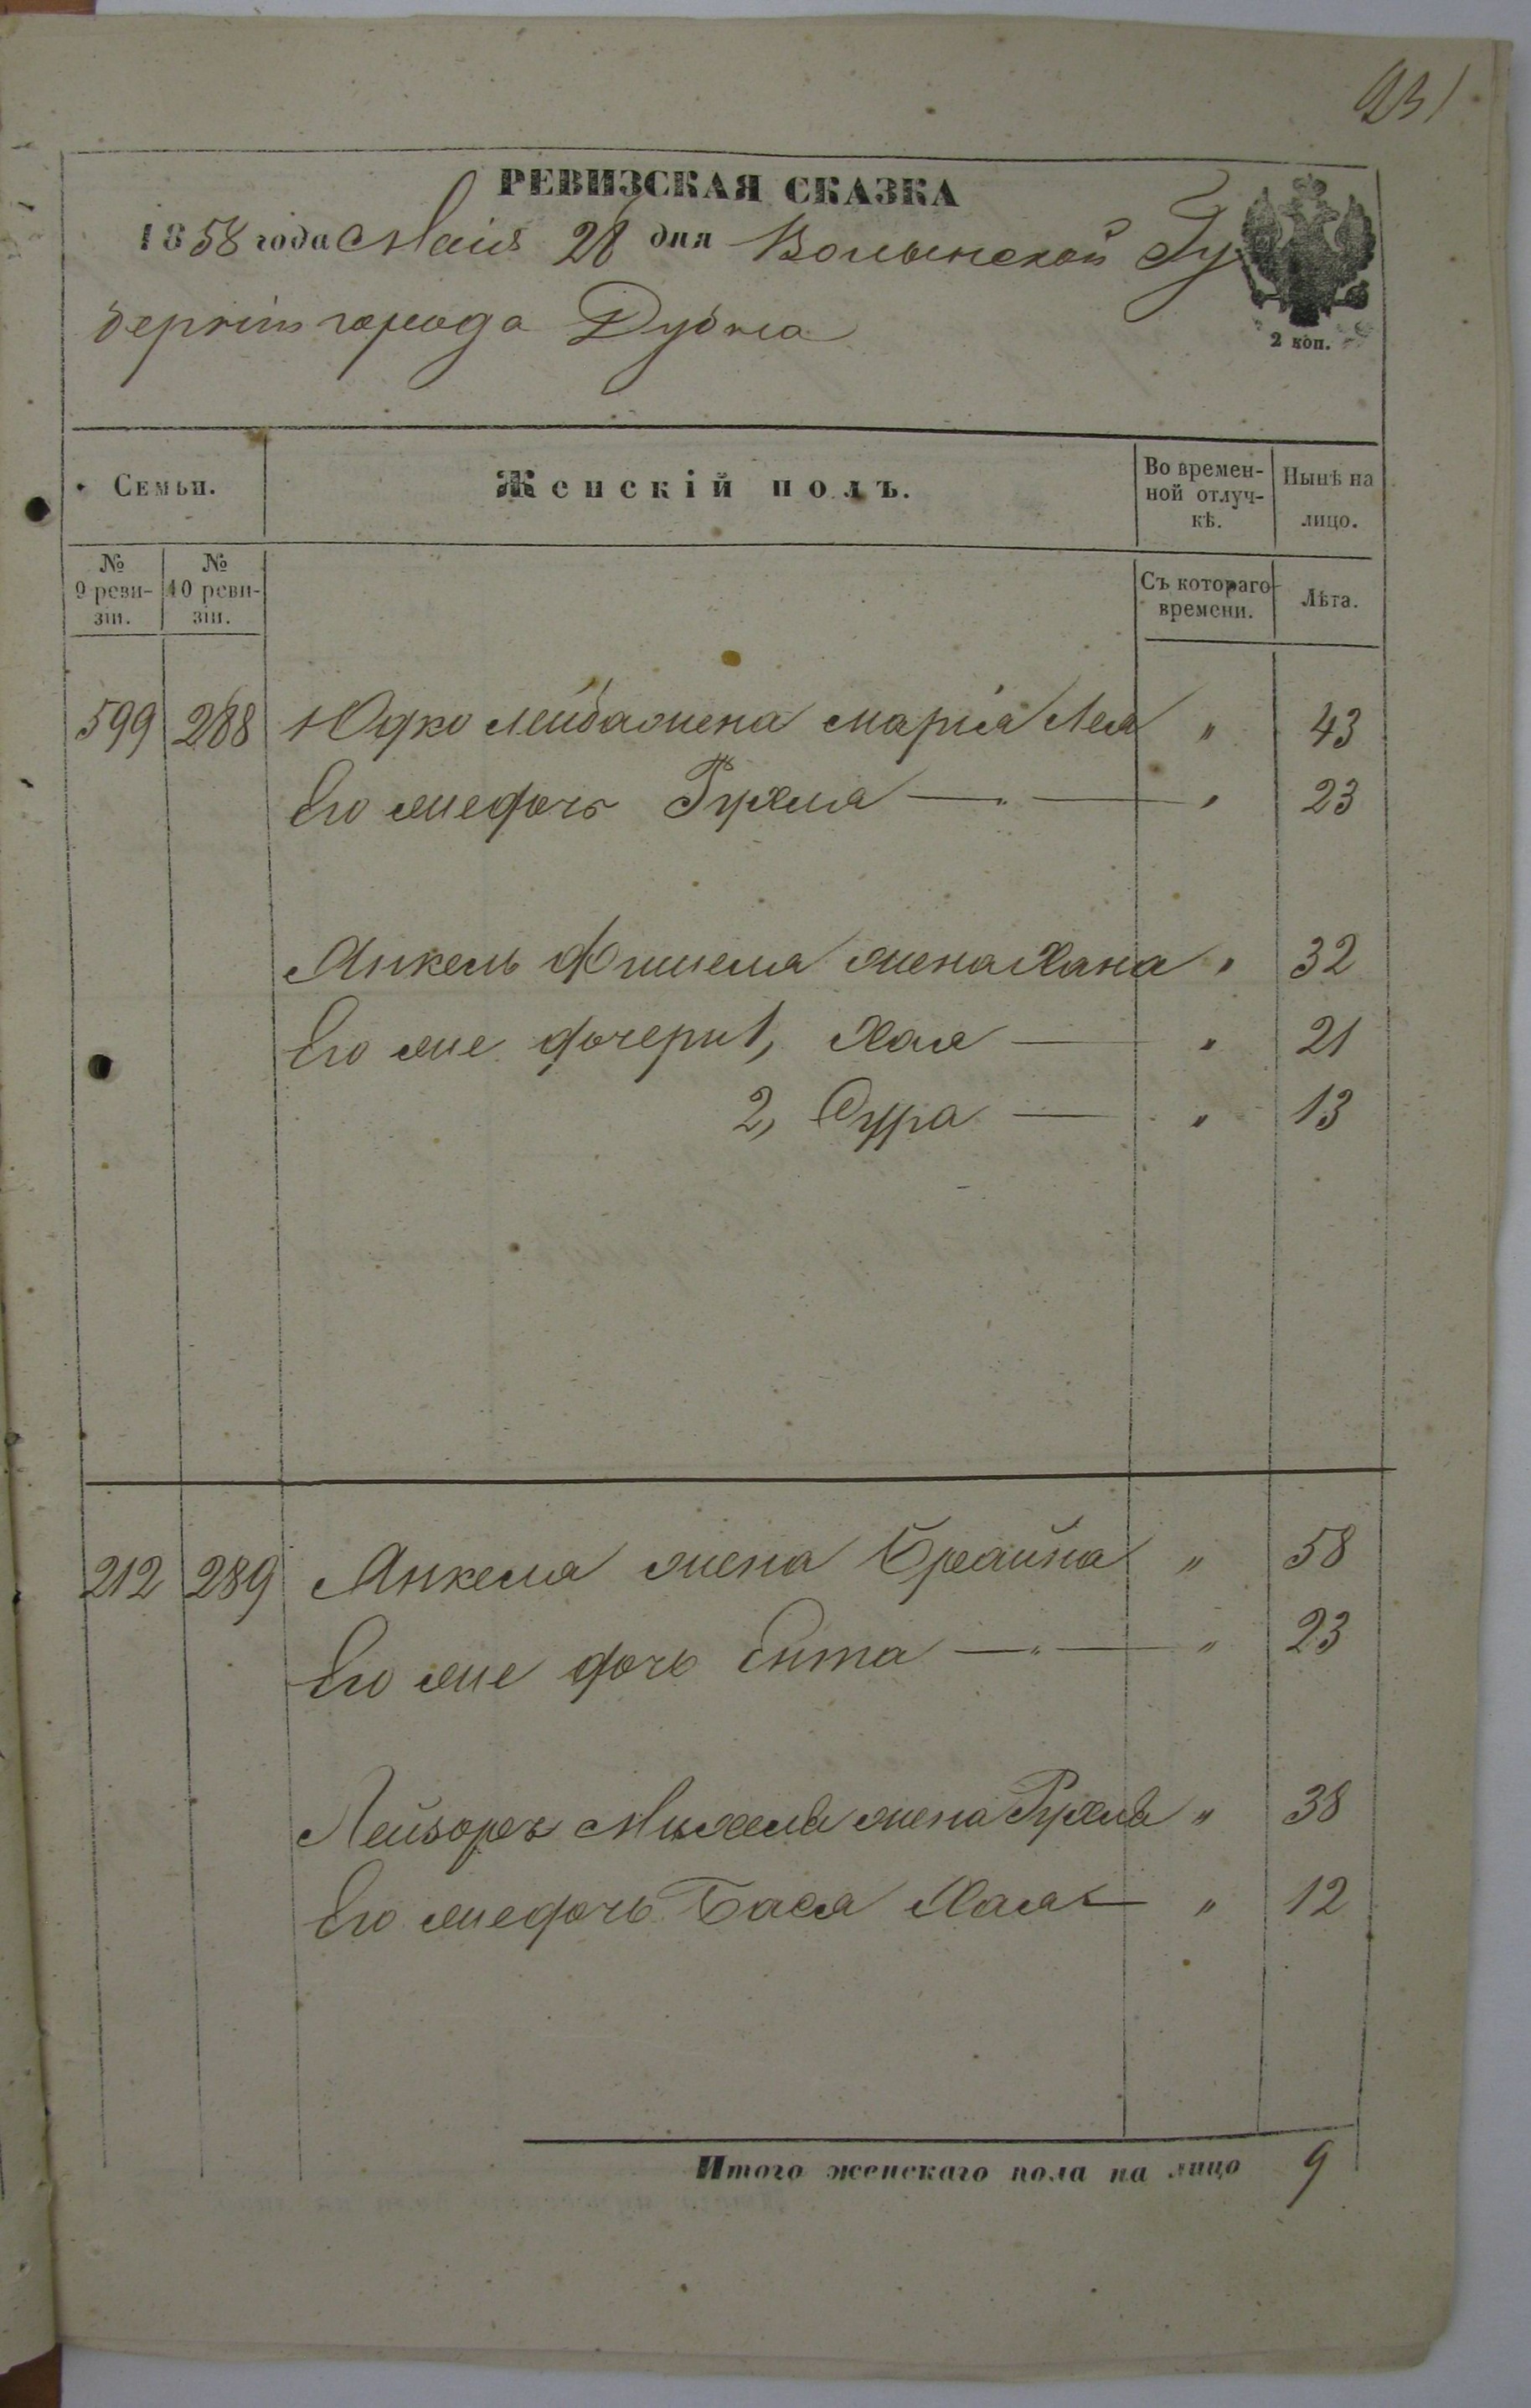 231
РЕВИЗСКАЯ СКАЗКА
1858 года Маія 28 дня Волынской Гу
берніи города Дубна
2 коп.
Семьи.
Женскій полъ.
Во времен-
ной отлуч-
кѣ.
Нынѣ на
лицо.
№
9 реви-
зіи.
№
10 реви-
зіи.
Съ котораго
времени.
Лѣта.
599 288 Юдко Лейба жена Марія Лея " 43
Его же дочь Рухля — " 23
Янкель Фишеля жена Хана " 32
Его же дочери 1, Хая — " 21
2, Сура — " 13
212 289 Янкеля жена Брайна " 58
Его же дочь Ента — " 23
Лейзоръ Михеля жена Рухля " 38
Его же дочь Бася Хая — " 12
Итого женскаго пола на лицо 9